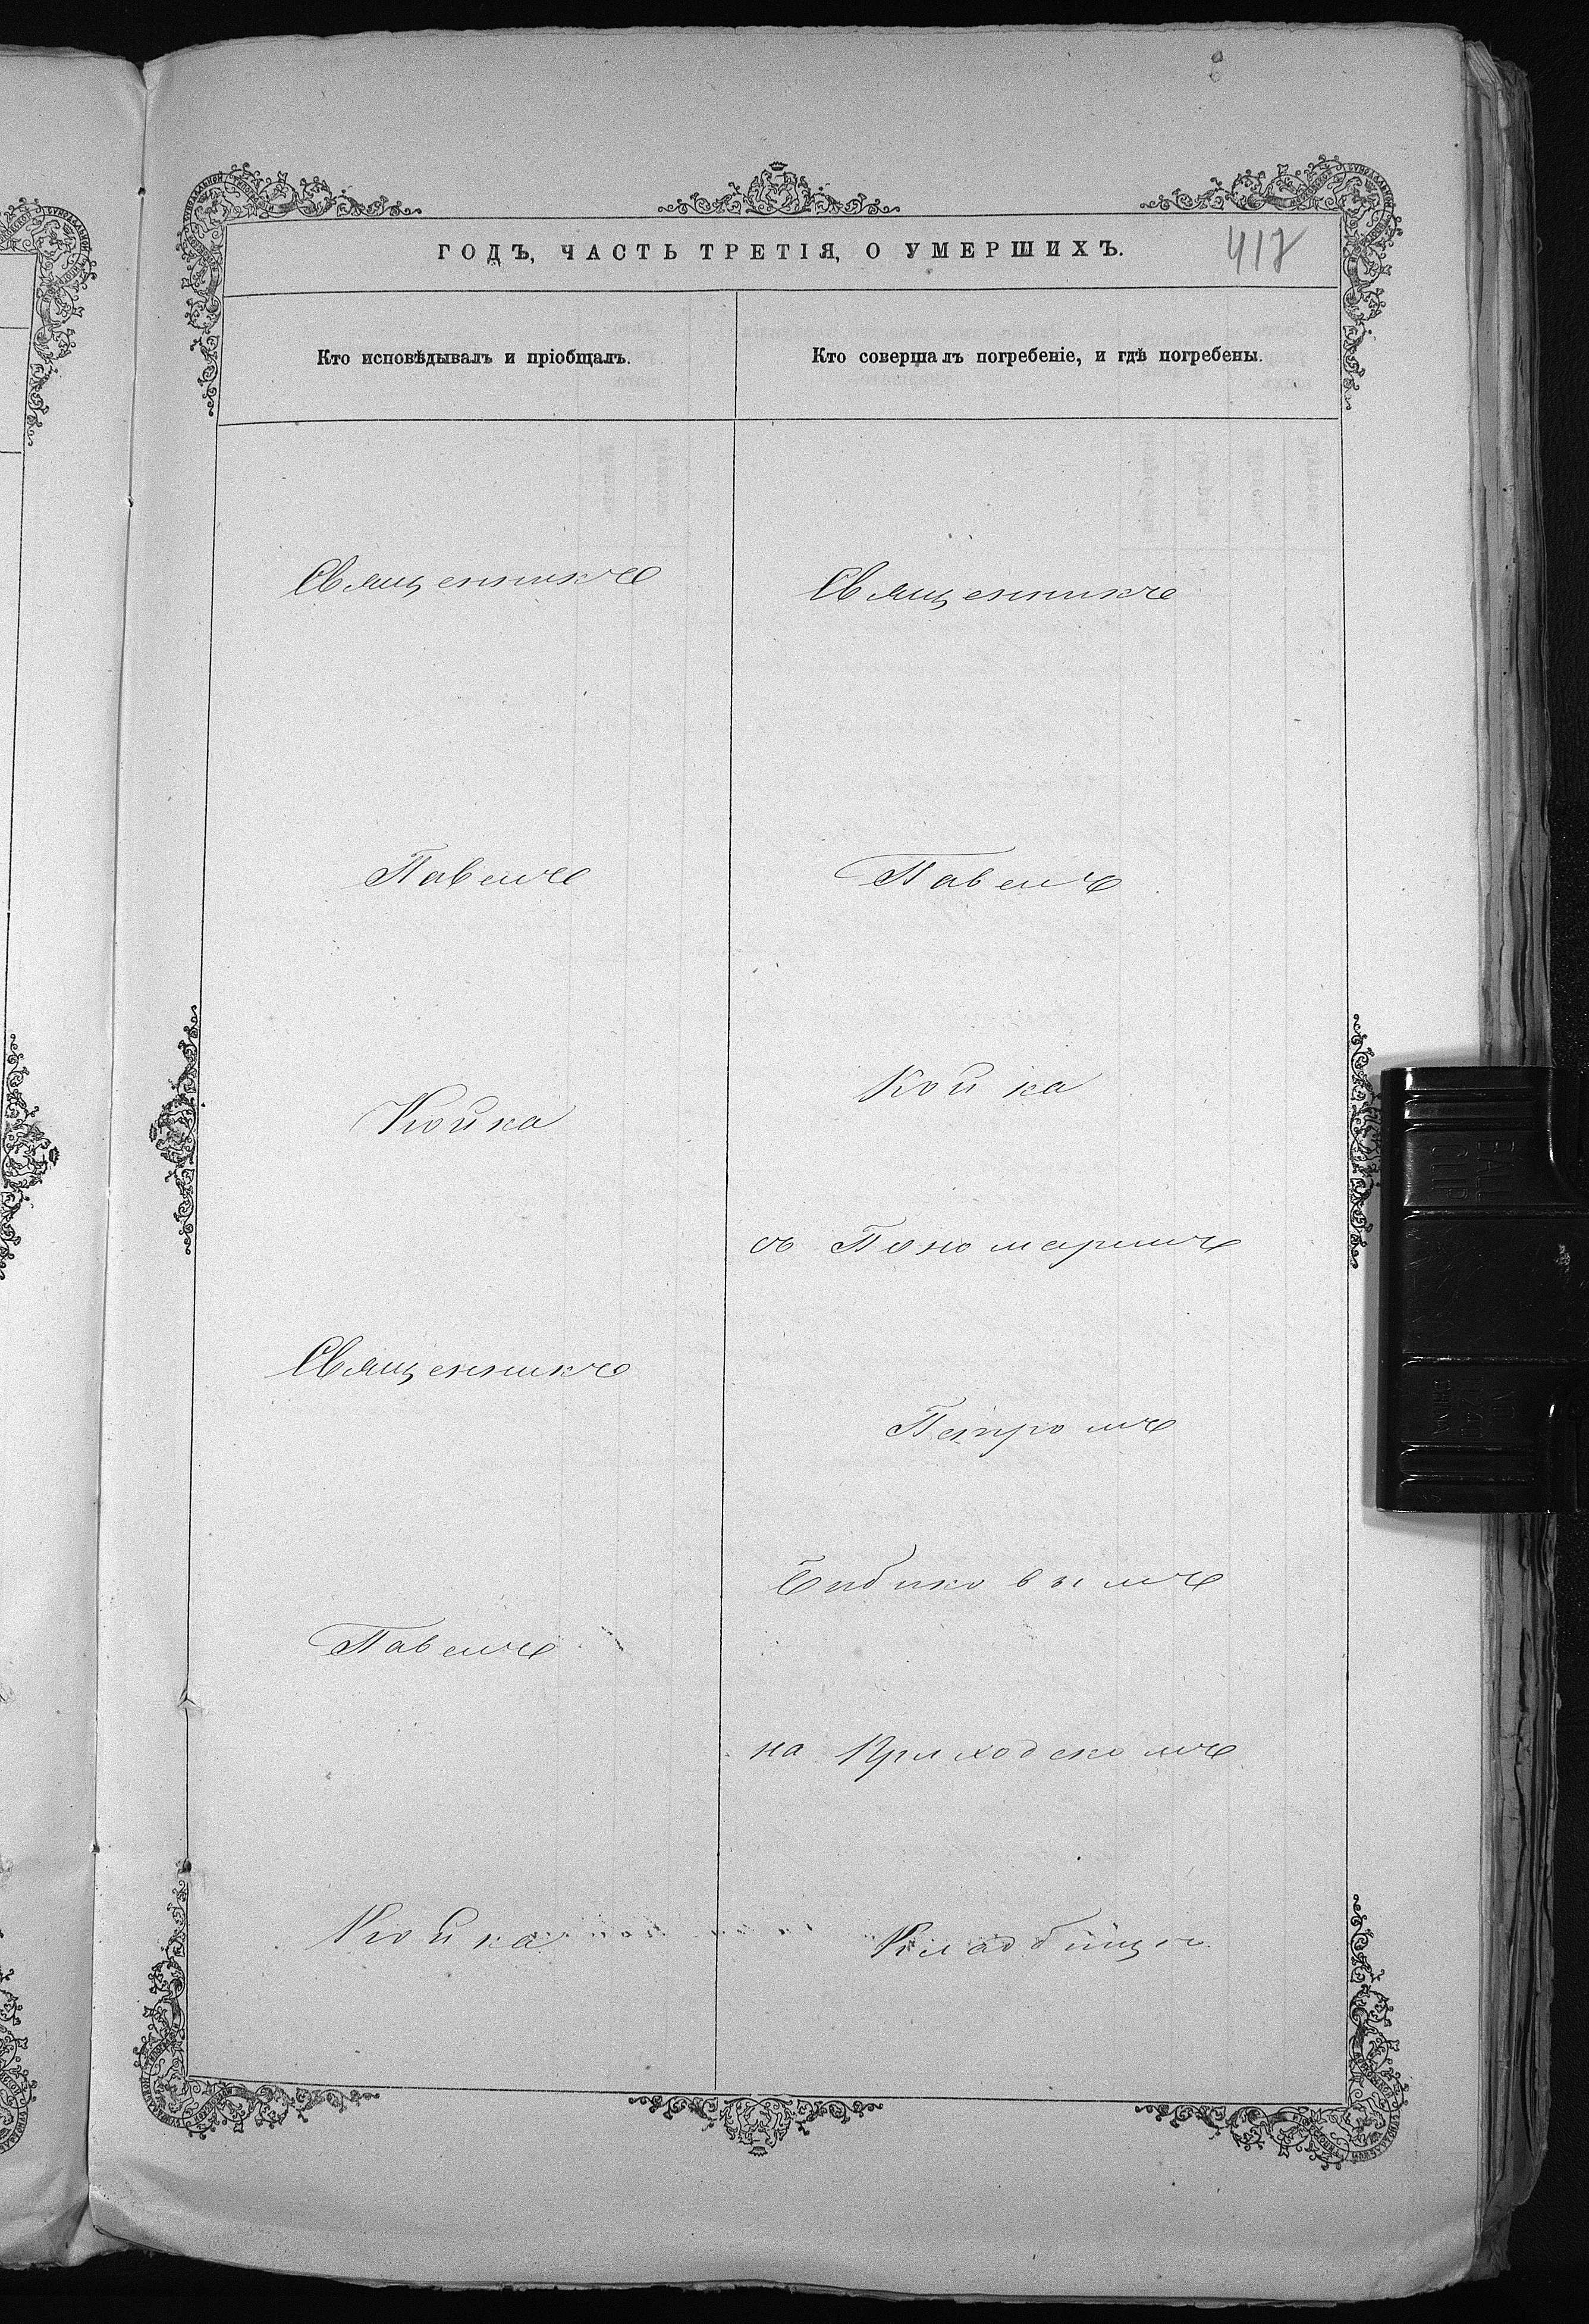 ГОДЪ, ЧАСТЬ ТРЕТІЯ, О УМЕРШИХЪ.
417
Кто исповѣдывалъ и пріобщалъ.
Священникъ
Павелъ
Койка
Священникъ
Павелъ
Койка
Кто совершалъ погребеніе, и гдѣ погребены.
Священникъ
Павелъ
Койка
съ Пономаремъ
Петромъ
Бибиковымъ
на Приходскомъ
Кладбищѣ.